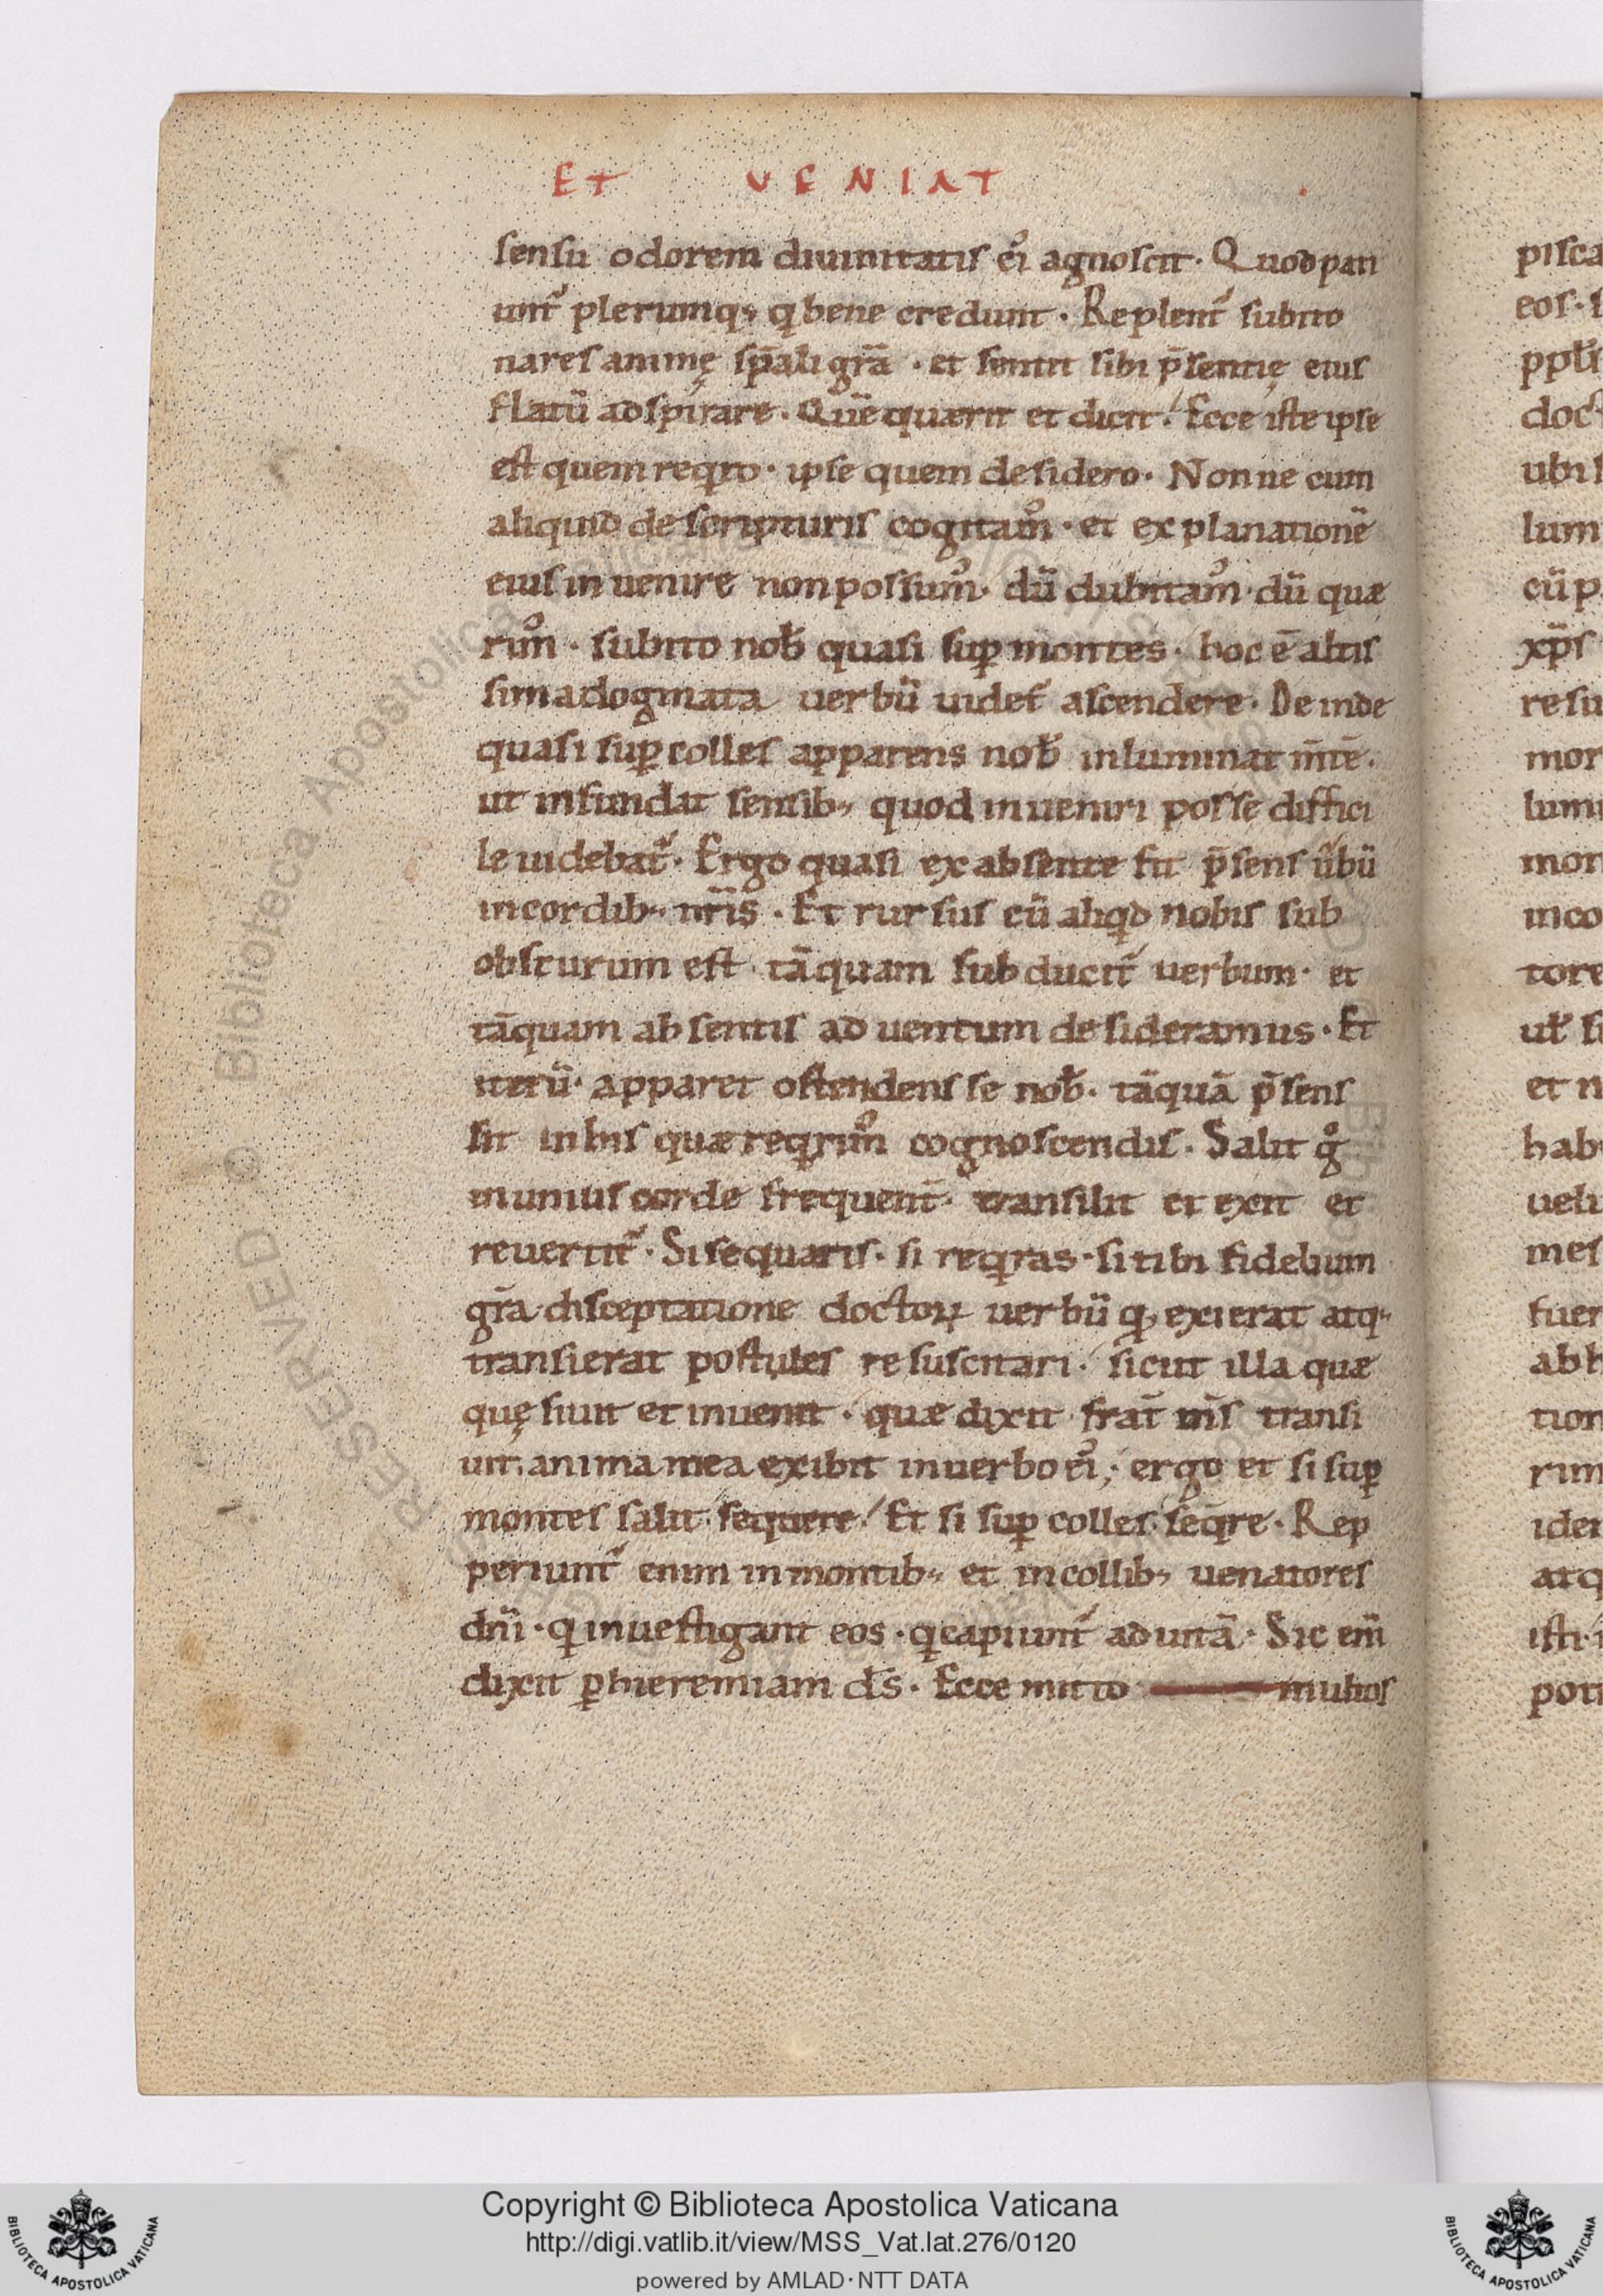 ET VENIAT
sensu odorem diuinitatis ei᾽ agnoscit. Quod pati
unt᾽ plerumq; q bene credunt. Replent᾽ subito
nares animę sp̄ali gr̄a. et sentit sibi p̄sentię eius
flatū adspirare. Quē quaerit et dicit. Ecce iste ipse
est quem reqiro. ipse quem desidero. Nonne cum
aliquid de scripturis cogitam᾽. et explanationē
eius inuenire non possum᾽. dū dubitam᾽. dū quae
rim᾽. subito nob̄ quasi sup̱ montes. hoc ē altis
sima dogmata uerbū uidet᾽ ascendere. Deinde
quasi sup̱ colles apparens nob̄ inluminat m̄tē.
ut infundat sensib; quod inueniri posse diffici
le uidebat᾽. Ergo quasi ex absente fit p̄sens u᾽bū
in cordib; nr̄is. Et rursus cū aliqd nobis sub
obscurum est. tāquam subducit᾽ uerbum. et
tāquam absentis aduentum desideramus. Et
iterū. apparet ostendens se nob̄. tāquā p̄sens
sit in his quae reqrim᾽ cognoscendis. Salit gͦ
in unius corde frequent̄. transilit et exit et
reuertit᾽. Si sequaris. si reqiras. si tibi fidelium
gr̄a disceptatione doctoꝝ uerbū qd exierat atq;
transierat postules resuscitari. sicut illa quae
quęsiuit et inuenit. quae dixit frat̄ m̄s transi
uit. anima mea exibit in uerbo ei᾽; ergo et si sup̱
montes salit. sequere. Et si sup̱ colles. seqre. Rep
periunt᾽ enim in montib; et in collib; uenatores
dn̄i. q inuestigant eos. q capiunt᾽ ad uitā. Sic em̄
dixit p̱ hieremiam d̄s. Ecce mitto multos
pisca
eos.
doc
ubi
lum
cū p
xp̄s
resu
mor
lumi
mon
inco
tore
et n
hab
ueli
mes
fuer
ab h
tion
rim
iden
atq
isti.
pot
Copyright © Biblioteca Apostolica Vaticana
http://digi.vatlib.it/view/MSS_Vat.lat.276/0120
powered by AMLAD·NTT DATA
BIBLIOTECA APOSTOLICA VATICANA
BIBLIOTECA APOSTOLICA VATICANA